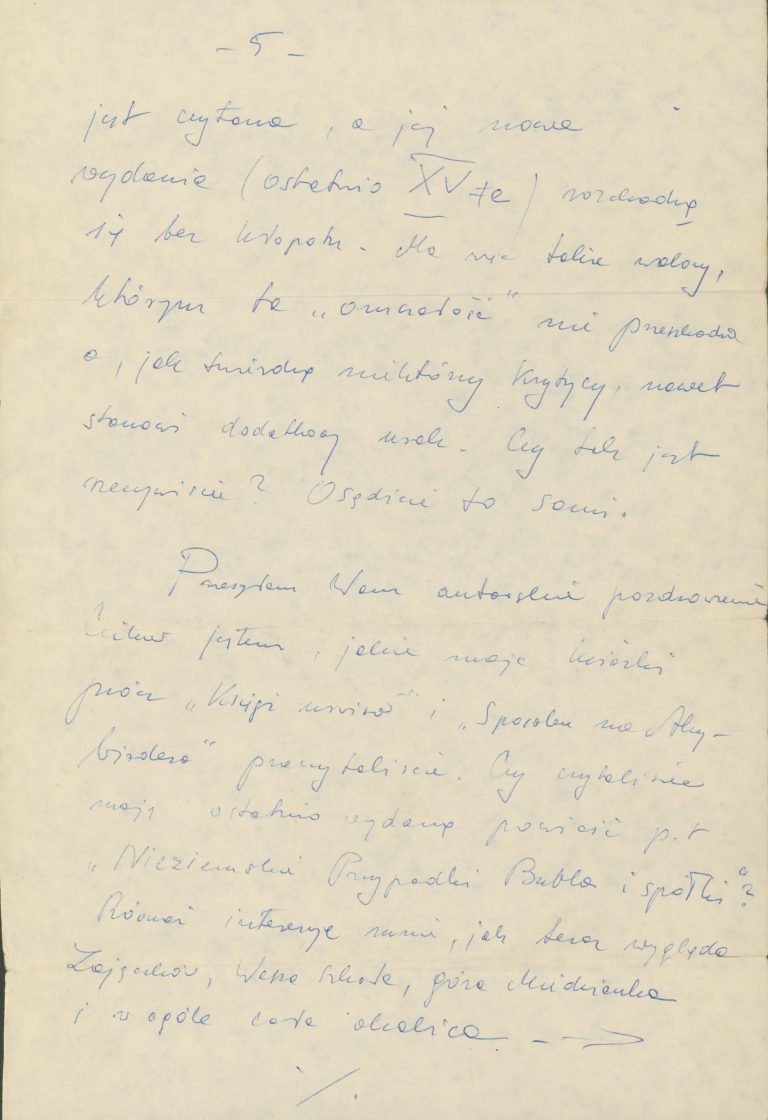 - 5 -
jest czytana, a jej nowe
wydania (ostatnio XV-te) rozchodzą
się bez kłopotu. Ma więc takie walory,
którym ta „ nie przeszkadza
a, jak twierdzą niektórzy krytycy, nawet
stanowi dodatkowy urok. Czy tak jest
rzeczywiście? Osądźcie to sami.
Przesyłam Wam autorskie pozdrowienia
Ciekaw jestem, jakie moje książki
prócz „Księgi urwisów" i „Sposobu na Alcy-
biadesa" przeczytaliście. Czy czytaliście
moją ostatnio wydaną powieść p.t
„Nieziemskie Przypadki Bubla i spółki"?
Również interesuje mnie, jak teraz wygląda
Zajączków, Wasza szkoła, góra Miedzianka
i w ogóle cała okolica -
./.